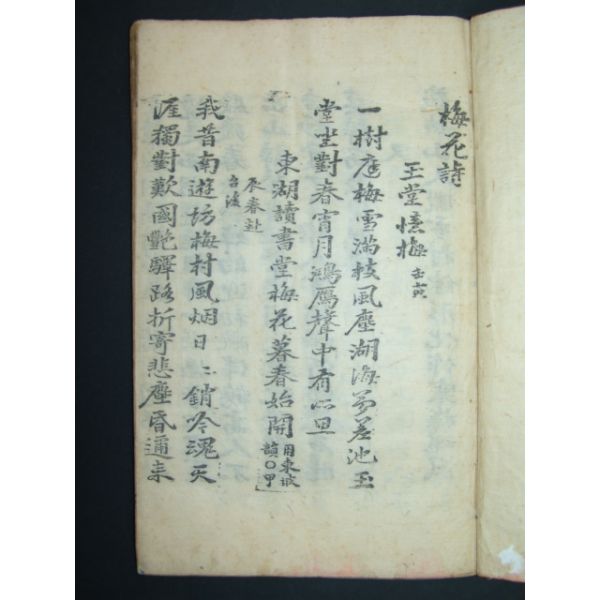 梅花詩
玉堂憶梅 壬寅
一樹庭梅雪滿枝風塵湖海夢差池玉
堂坐對春宵月鴻鴈聲中有所思
東湖讀書堂梅花暮春始開 用東坡
韻〇甲
辰春赴
召後
我昔南遊坊梅村風烟日〻銷吟魂天
涯獨對歎國艷驛路折寄悲塵昏邇来